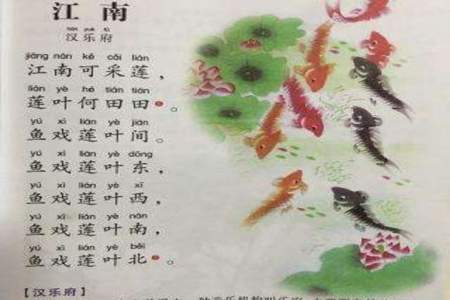 江南
hàn yuè fǔ
汉乐府
jiāng nán kě cǎi lián
江南可采莲，
lián yè hé tián tián
莲叶何田田。
yú xì lián yè jiān
鱼戏莲叶间。
yú xì lián yè dōng
鱼戏莲叶东，
yú xì lián yè xī
鱼戏莲叶西，
yú xì lián yè nán
鱼戏莲叶南，
yú xì lián yè běi
鱼戏莲叶北。
【汉乐府】